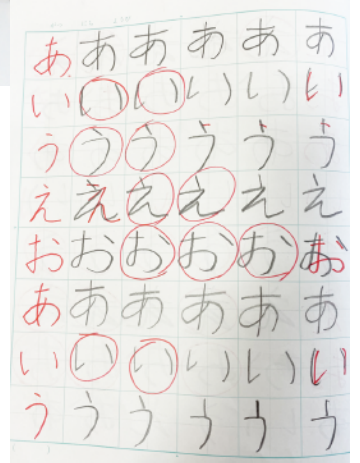 あ あ あ あ あ あ
い い い い い い
う う う う う う
え え え え え え
お お お お お お
あ あ あ あ あ あ
い い い い い い
う う う う う う